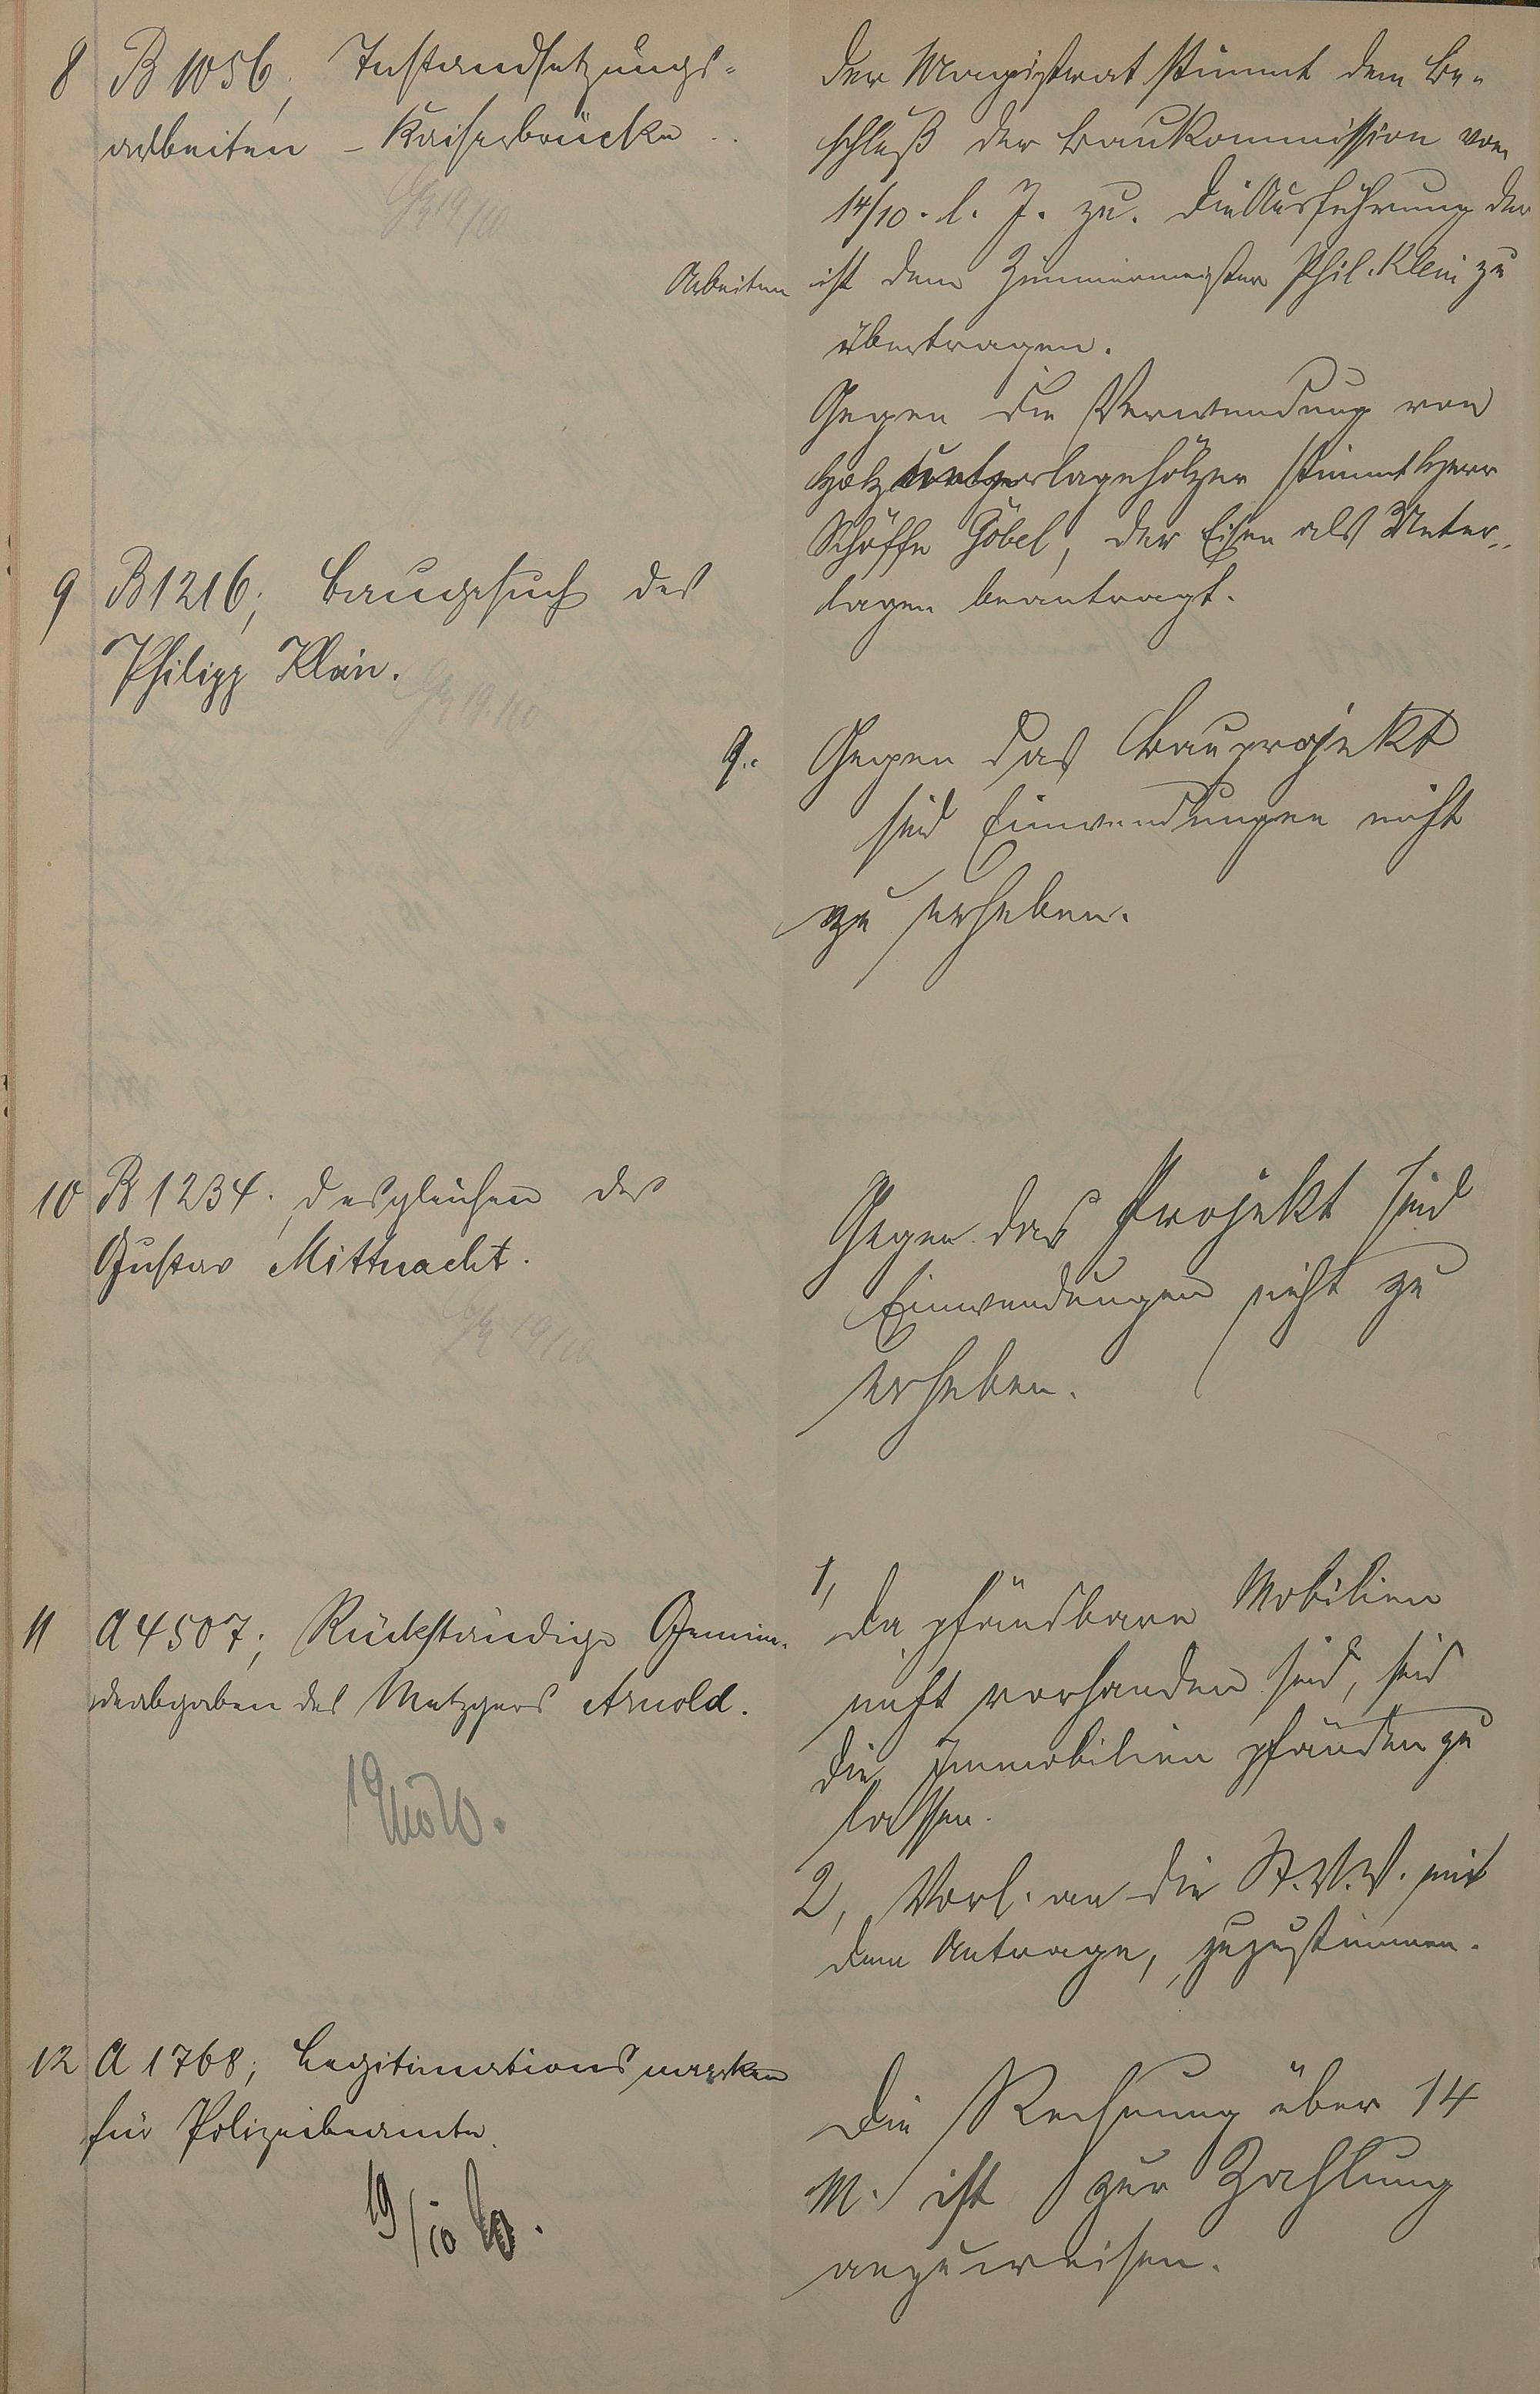 8 B 1056; Instandsetzungs-
arbeiten - Kaiserbrücke.
Gz 19/10
Der Magistrat stimmt dem Be-
schluß der Baukommission vom
14/10. l. J. zu. Die Ausführung der
Arbeiten ist dem Zimmermeister Phil. Klein zu
übertragen.
Gegen die Verwendung von
Holz unterlagehölzer stimmt Herr
Schöffe Göbel, der Eisen als Unter-
lagen beantragt.
9 B 1216; Baugesuch des
Philipp Klein.
Gz 19./10
9.. Gegen das Bauprojekt
sind Einwendungen nicht
zu erheben.
10 B 1234; desgleichen des
Gustav Mittnacht.
Gz 19/10
Gegen das Projekt sind
Einwendungen nicht zu
erheben.
11 A 4507; Rückständige Gemein-
deabgaben des Metzgers Arnold.
1, Da pfändbare Mobilien
nicht vorhanden sind, sind
die Immobilien pfänden zu
lassen.
2, Vorl. an die St.V.V. mit
dem Antrage, zuzustimmen.
12 A 1768; Legitimationsmarken
für Polizeibeamte.
19/10
Die Rechnung über 14
M. ist zur Zahlung
anzuweisen.